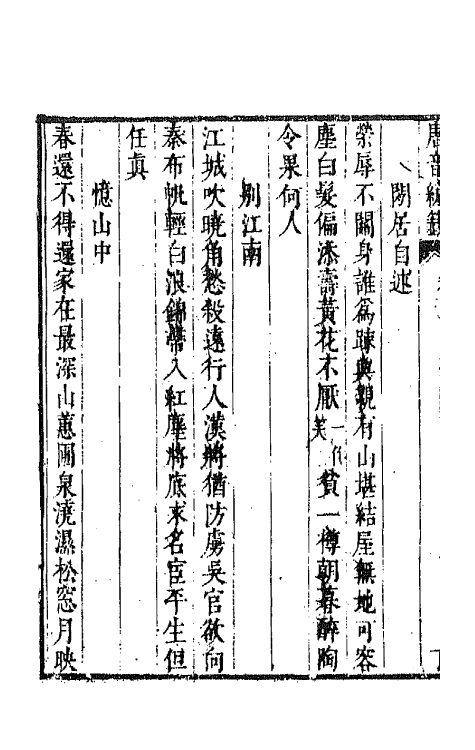 唐音統籖
閒居自述
榮辱不關身誰爲踈與親有山堪結屋無地可容
塵白髮偏添壽黃花不厭一作笑貧一樽朝暮醉陶
令果何人
別江南
江城吹曉角愁殺遠行人漢將猶防虜吳官欲向
秦布帆輕白浪錦帶入紅塵將底求名宦平生但
任眞
憶山中
春還不得還家在最深山蕙圃泉澆濕松窓月映